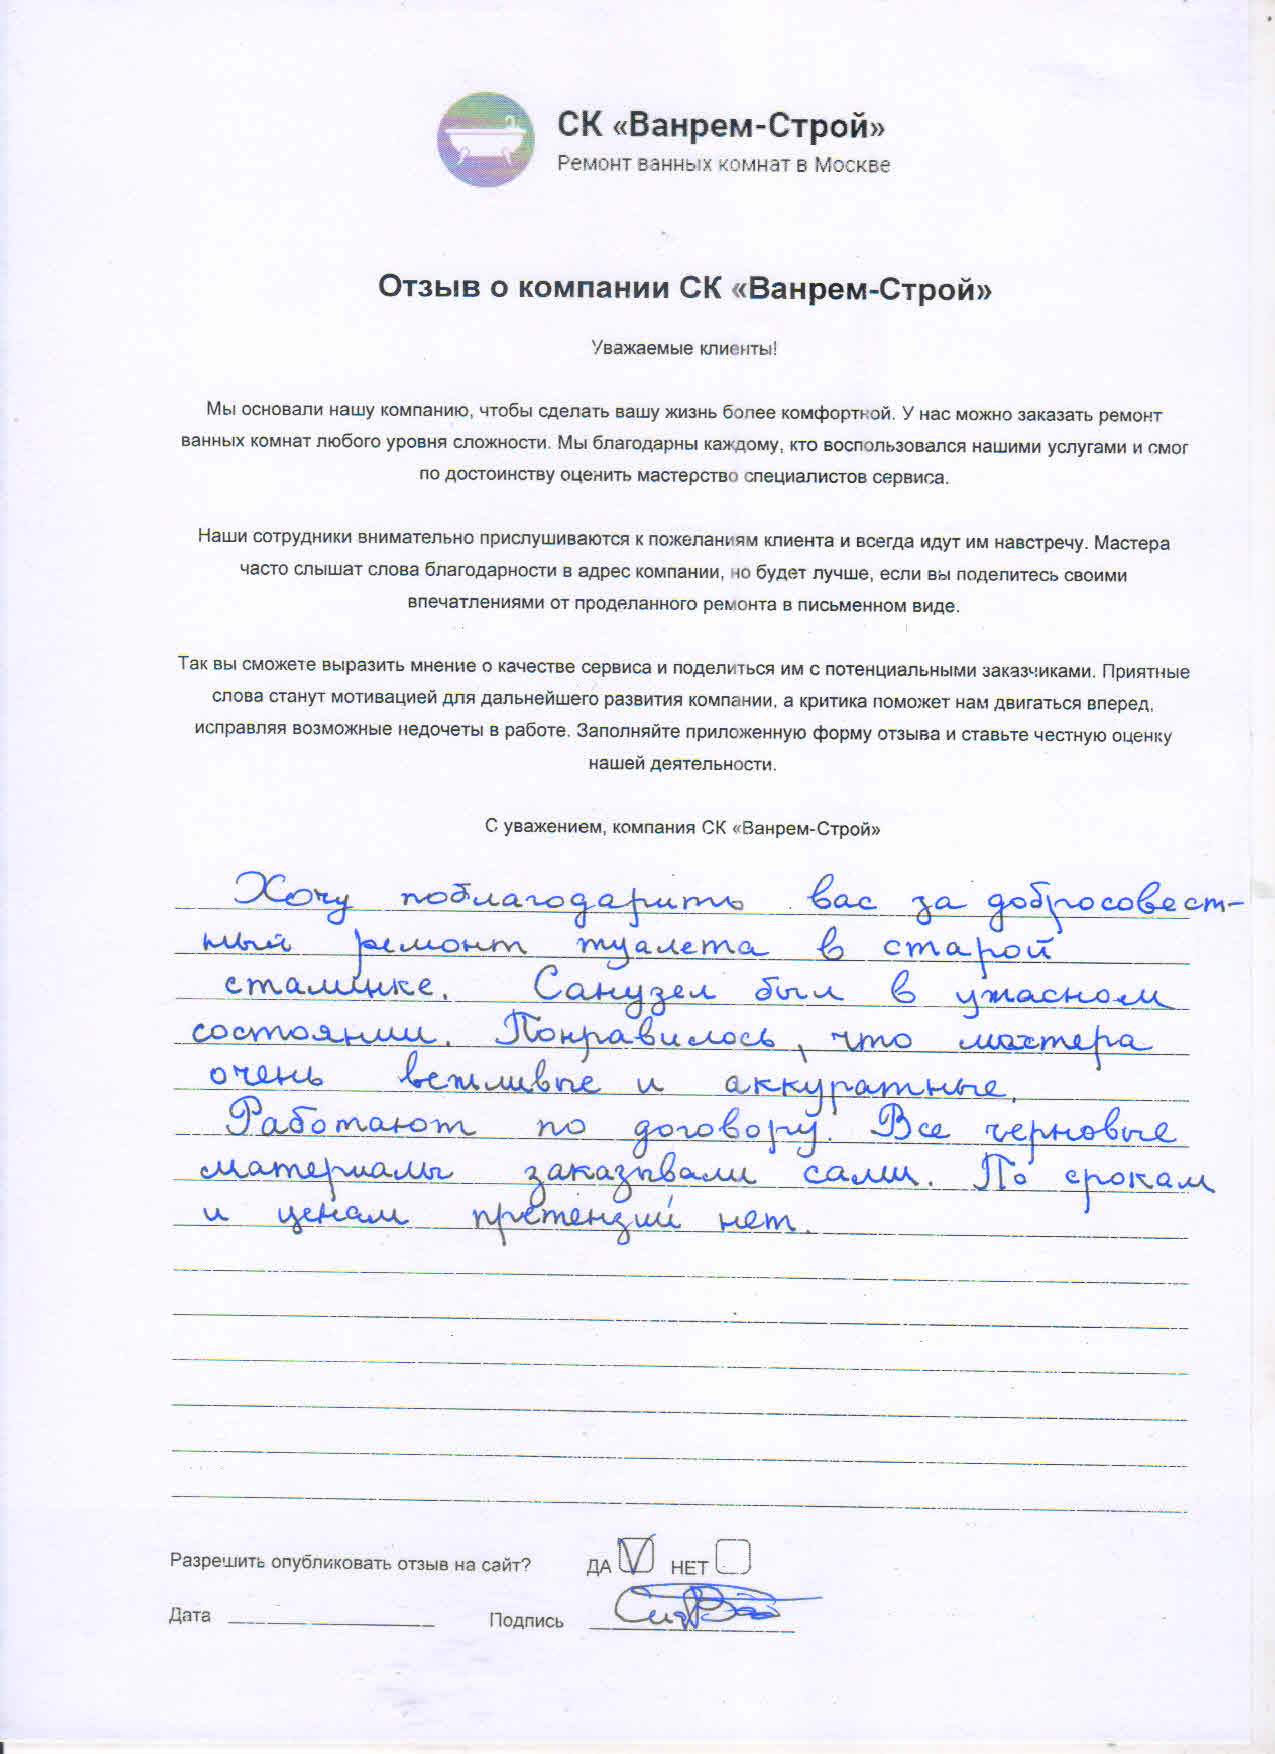 СК «Ванрем-Строй»
Ремонт ванных комнат в Москве
Отзыв о компании СК «Ванрем-Строй»
Уважаемые клиенты!
Мы основали нашу компанию, чтобы сделать вашу жизнь более комфортной. У нас можно заказать ремонт
ванных комнат любого уровня сложности. Мы благодарны каждому, кто воспользовался нашими услугами и смог
по достоинству оценить мастерство специалистов сервиса.
Наши сотрудники внимательно прислушиваются к пожеланиям клиента и всегда идут им навстречу. Мастера
часто слышат слова благодарности в адрес компании, но будет лучше, если вы поделитесь своими
впечатлениями от проделанного ремонта в письменном виде.
Так вы сможете выразить мнение о качестве сервиса и поделиться им с потенциальными заказчиками. Приятные
слова станут мотивацией для дальнейшего развития компании, а критика поможет нам двигаться вперед,
исправляя возможные недочеты в работе. Заполняйте приложенную форму отзыва и ставьте честную оценку
нашей деятельности.
С уважением, компания СК «Ванрем-Строй»
Хочу поблагодарить вас за добросовест-
ный ремонт туалета в старой
сталинке. Санузел был в ужасном
состоянии. Понравилось, что мастера
очень вежливые и аккуратные.
Работают по договору. Все черновые
материалы заказывали сами. По срокам
и ценам претензий нет.
Разрешить опубликовать отзыв на сайт? ДА V НЕТ
Дата Подпись